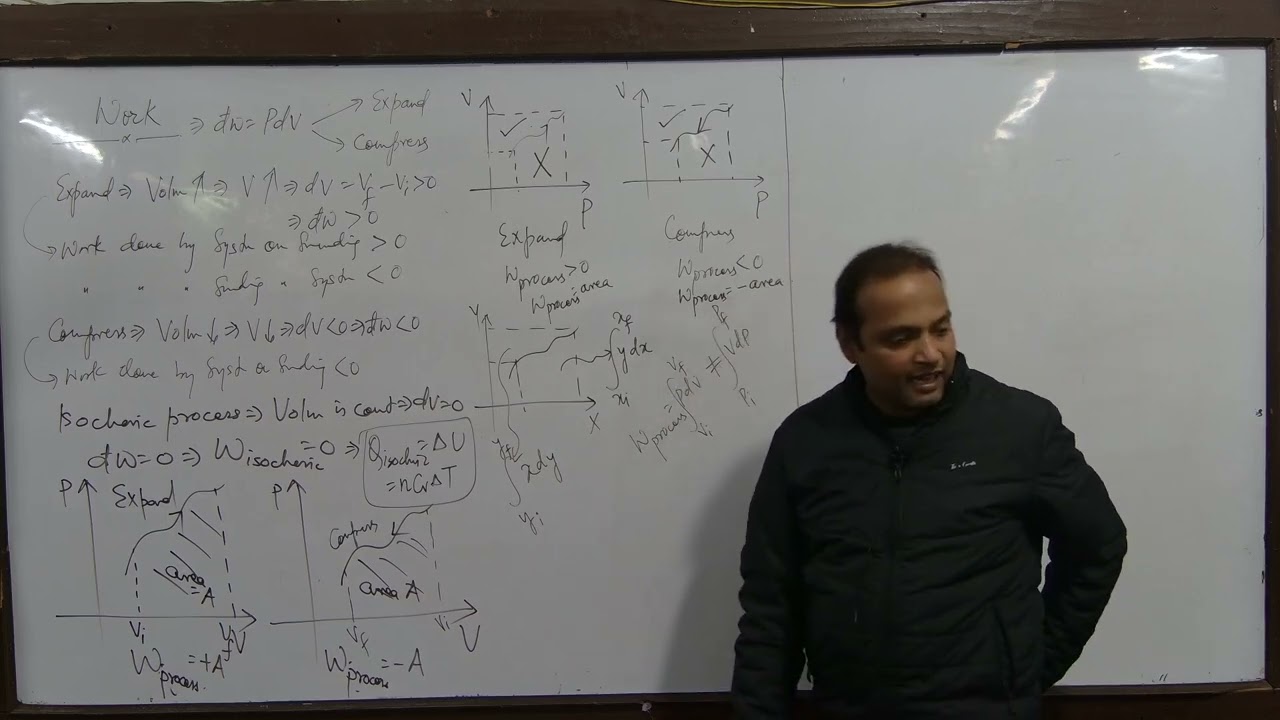 Work ⇒ đW = PdV
Expand
Compress
Expand ⇒ Volm ↑ ⇒ V ↑ ⇒ dV = Vf - Vi > 0
⇒ đW > 0
Work done by Systm on Surrunding > 0
" " " Surrunding " Systm < 0
Compress ⇒ Volm ↓ ⇒ V ↓ ⇒ dV < 0 ⇒ đW < 0
Work done by Syst on < 0
Isochoric process ⇒ Volm is cont ⇒ dV = 0
đW = 0 ⇒ Wisochoric = 0 ⇒
Qisochoric = ΔU
= nCvΔT
P
Expand
area
= A
Vi
Vf
V
Wprocess = +A
P
Compress
area A
Vf
Vi
V
Wprocess = -A
V
X
P
Expand
Wprocess > 0
Wprocess = area
V
X
P
Compress
Wprocess < 0
Wprocess = -area
Y
X
xf
∫ y dx
xi
yf
∫ x dy
yi
Wprocess = ∫ PdV ≠ ∫ VdP
Vf
Vi
Pf
Pi